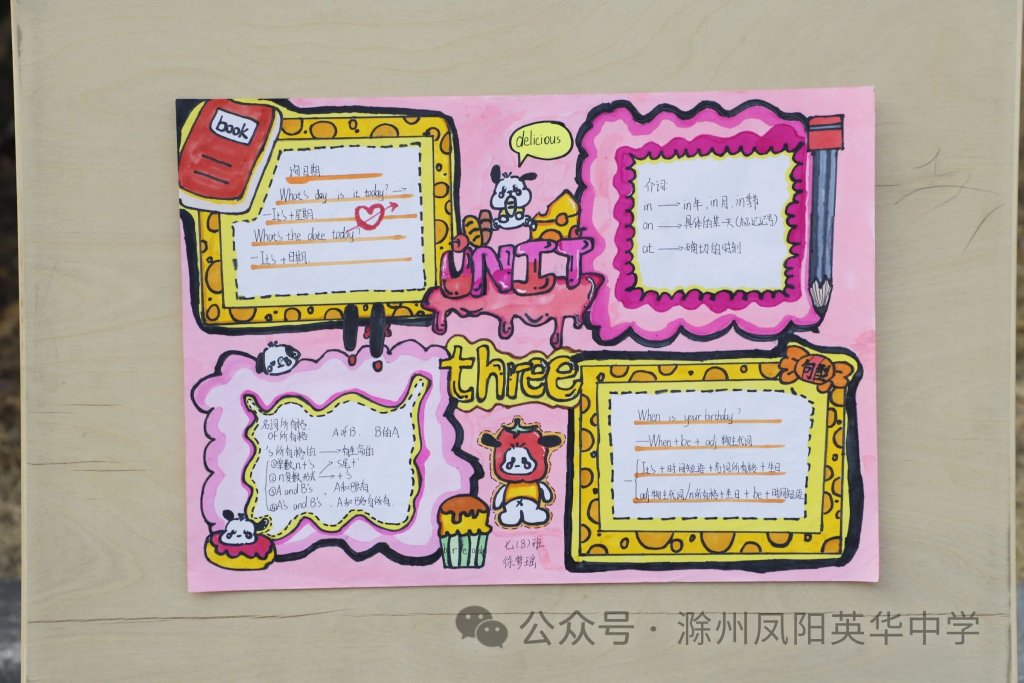 book
询日期:
What's day is it today? →
-It's+星期
What's the date today?
-It's+日期.
delicious
UNIT
three
介词:
in → in年, in月, in季节
on → 具体的某一天
at → 确切的时刻
名词所有格
OF所有格 A of B. B的A
's所有格的 → 有生命的
①单数n+'s
②n复数形式
③A and B's , A和B共有
④A's and B's , A和B各自所有.
句型
When is your birthday?
—When+be+adj物主代词
It's+时间短语+名词所有格+生日
adj物主代词/n所有格+生日+be+时间短语
bread
七(8)班
徐梦瑶
公众号·滁州凤阳英华中学